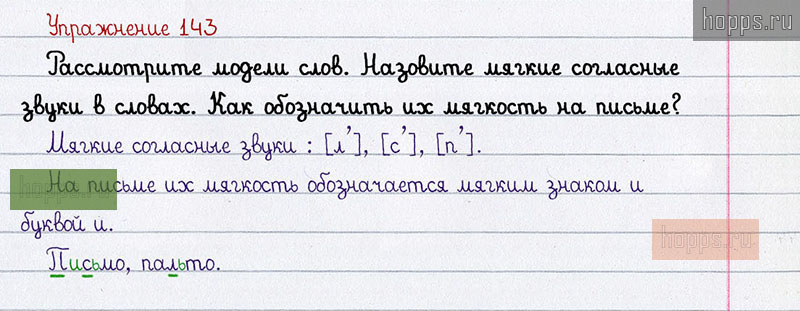 Упражнение 143
hopps.ru
Рассмотрите модели слов. Назовите мягкие согласные
звуки в словах. Как обозначить их мягкость на письме?
Мягкие согласные звуки : [л’], [с’], [п’].
На письме их мягкость обозначается мягким знаком и
hopps.ru
буквой и.
hopps.ru
Письмо, пальто.